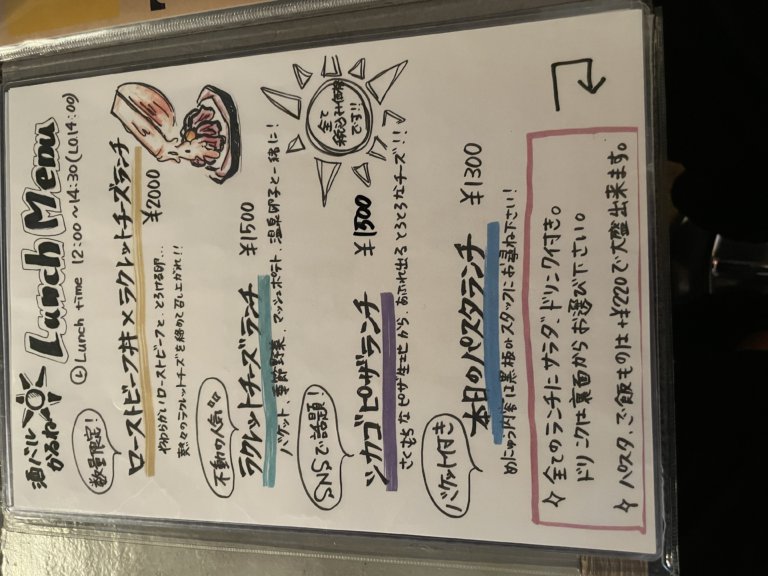 酒バル
かるね
Lunch Menu
Lunch time 12:00〜14:30(LO.14:00)
数量限定!
ローストビーフ丼×ラクレットチーズランチ
¥2000
やわらかいローストビーフと、とろける卵…
熱々のラクレットチーズを絡めて召し上がれ!!
不動の人気
ラクレットチーズランチ ¥1500
バケット、季節野菜、マッシュポテト、温泉卵子と一緒に!
全て
税込み価格
です!!
SNSで話題!
シカゴピザランチ ¥1500
さくもちなピザ生地から、あふれ出るとろとろなチーズ!!
バケット付き
本日のパスタランチ ¥1300
めにゅう内容は黒板orスタッフにお尋ね下さい!
全てのランチにサラダ、ドリンク付き。
ドリンクは裏面からお選び下さい。
パスタ、ご飯ものは+¥220で大盛出来ます。